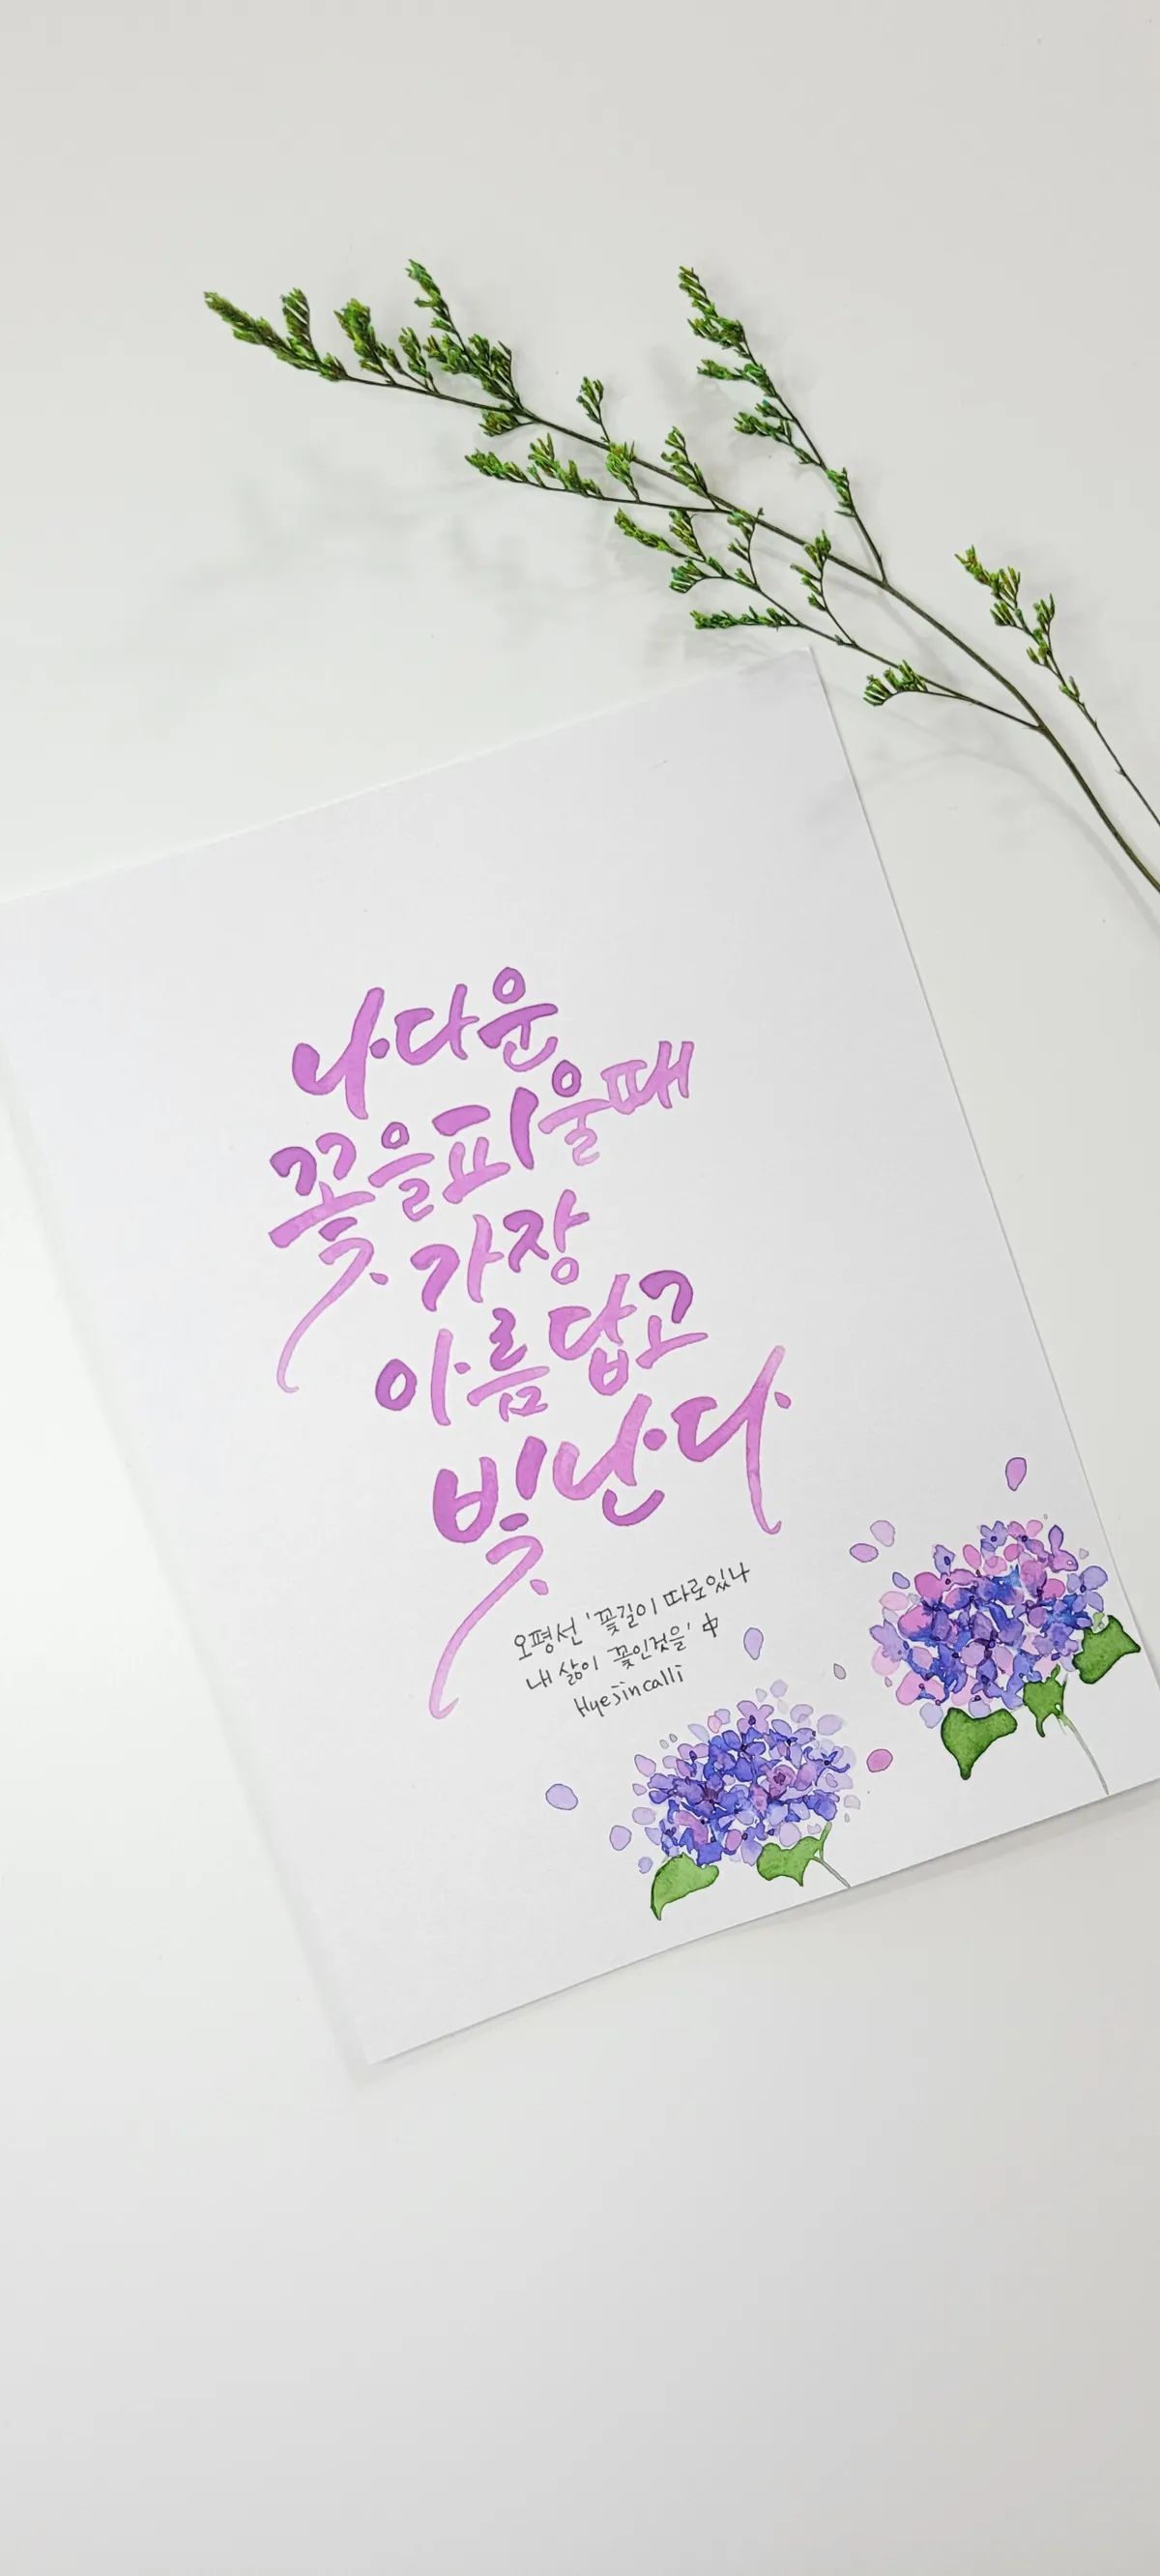 나다운
꽃을피울때
가장
아름답고
빛난다
오평선 '꽃길이 따로있나
내 삶이 꽃인것을' 中
Hyejincalli